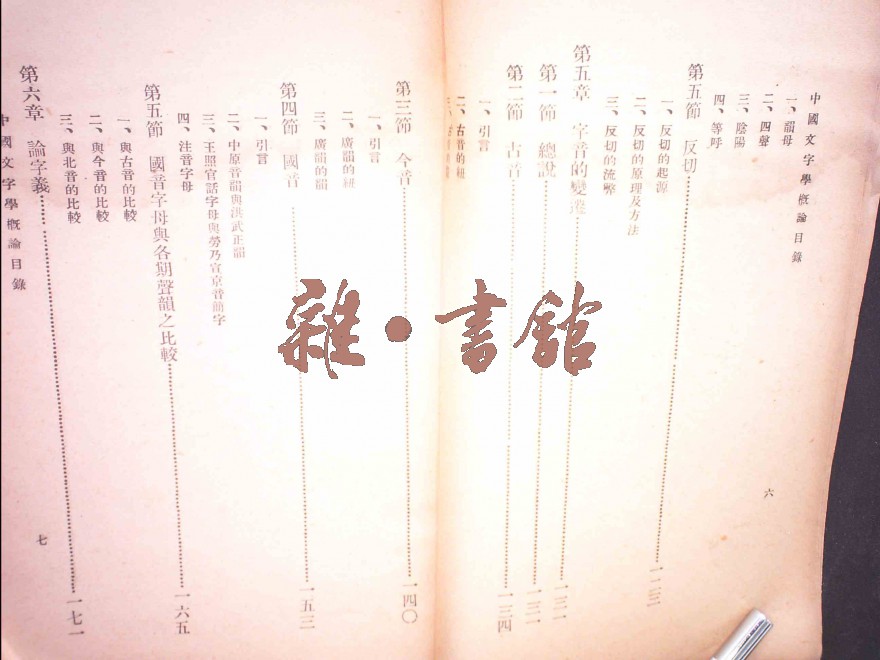 中國文字學概論目錄
一、韻母
二、四聲
三、陰陽
四、等呼
第五節 反切 一二三
一、反切的起源
二、反切的原理及方法
三、反切的流弊
第五章 字音的變遷 一三一
第一節 總說 一三一
第二節 古音 一三四
一、引言
二、古音的紐
六
第三節 今音 一四〇
一、引言
二、廣韻的紐
三、廣韻的韻
第四節 國音 一五三
一、引言
二、中原音韻與洪武正韻
三、王照官話字母與勞乃宣京音簡字
四、注音字母
第五節 國音字母與各期聲韻之比較 一六五
一、與古音的比較
二、與今音的比較
三、與北音的比較
第六章 論字義 一七一
中國文字學概論目錄
七
雜·書館